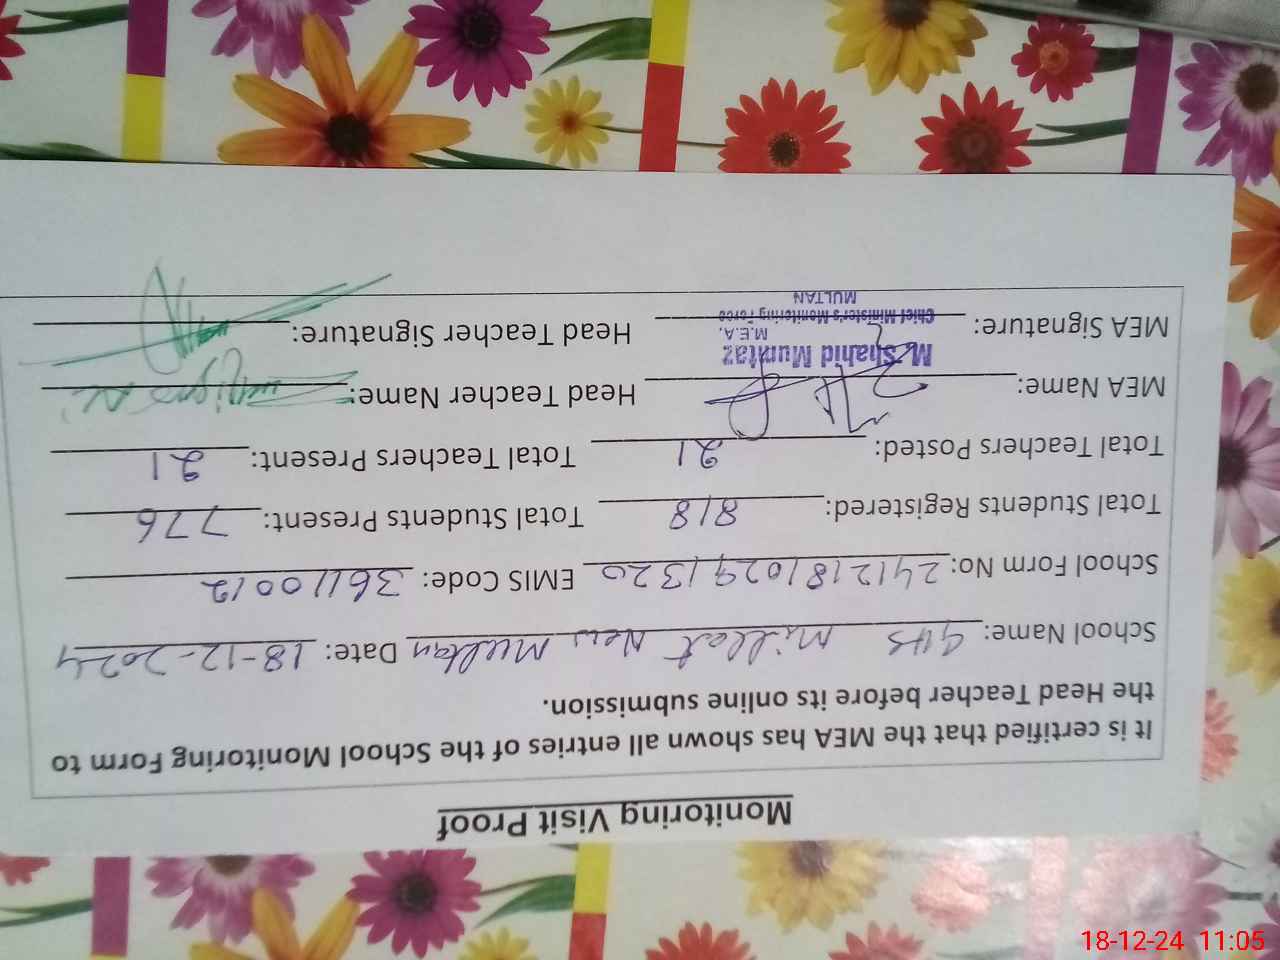 Monitoring Visit Proof
It is certified that the MEA has shown all entries of the School Monitoring Form to
the Head Teacher before its online submission.
School Name: GHS Millat New Multan Date: 18-12-2024
School Form No: 24121810291320 EMIS Code: 36110012
Total Students Registered: 818 Total Students Present: 776
Total Teachers Posted: 21 Total Teachers Present: 21
MEA Name: Head Teacher Name:
M. Shahid Mumtaz
M.E.A.
MEA Signature: Head Teacher Signature:
Chief Minister's Monitoring Force
MULTAN
18-12-24 11:05